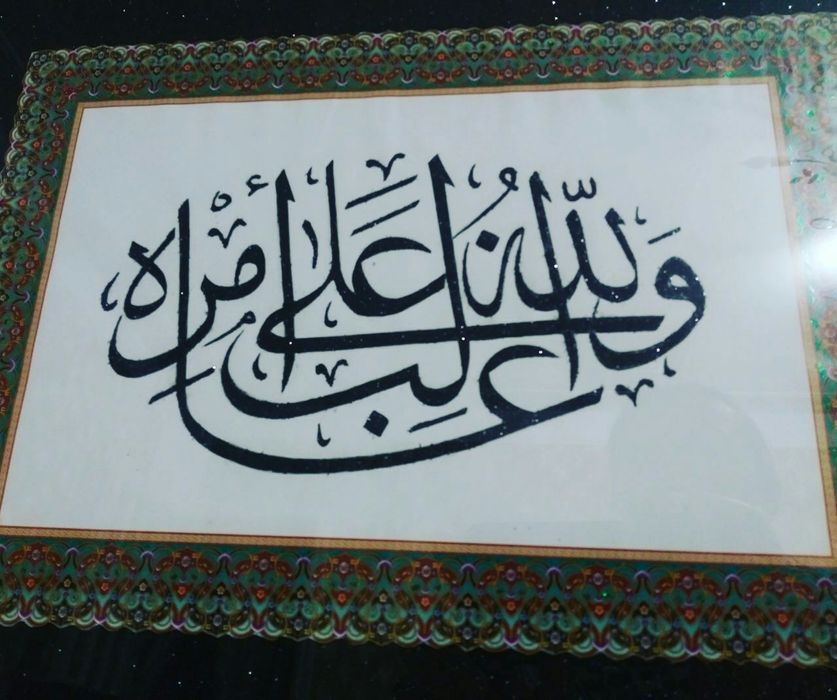 وَاللّٰهُ غَالِبٌ عَلَىٰ أَمْرِهِ